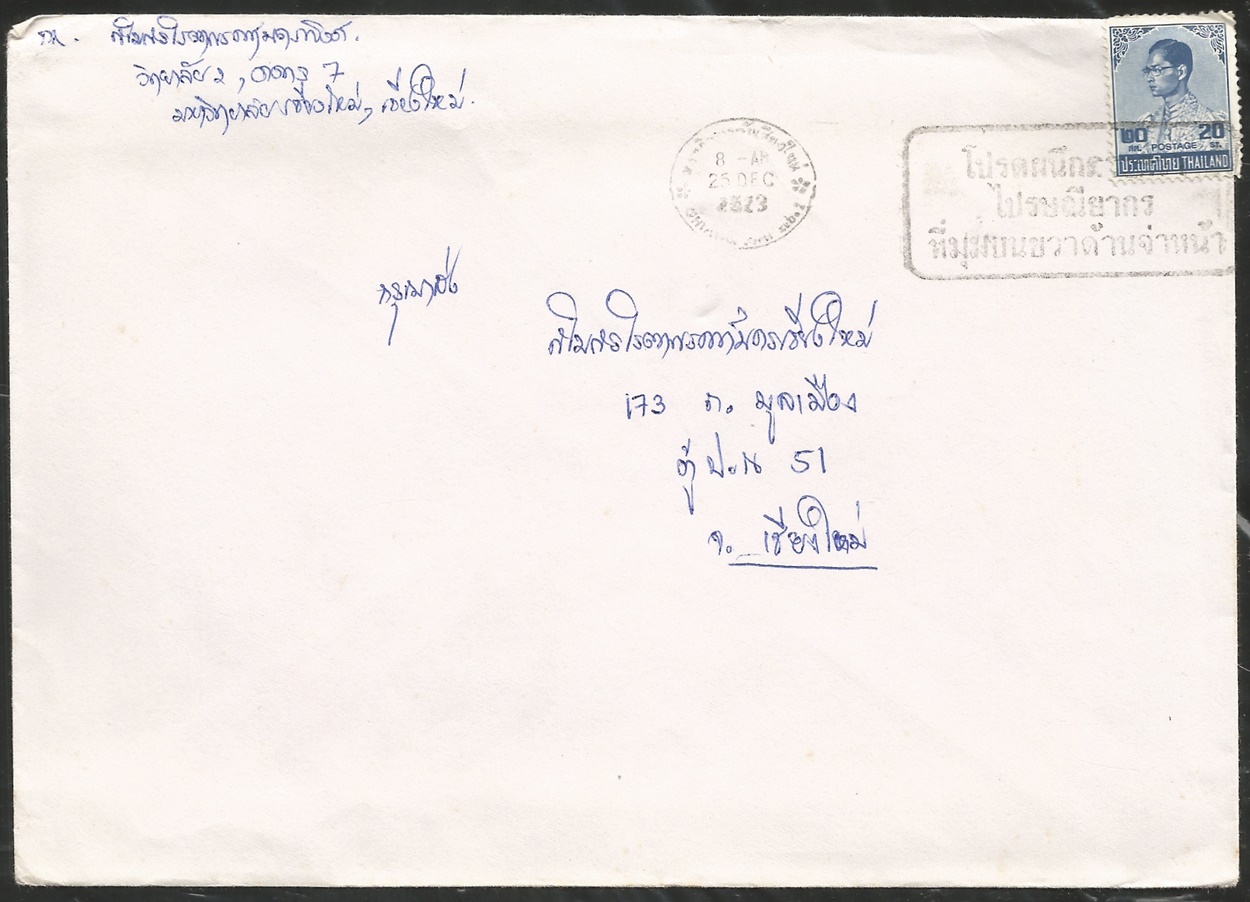 วิทยาลัย 2, อาคาร 7
มหาวิทยาลัยเชียงใหม่, เชียงใหม่.
8 - AM
25 DEC
๒๐ 20
POSTAGE ST.
ประเทศไทย THAILAND
โปรดผนึก
ไปรษณียากร
ที่มุมบนขวาด้านจ่าหน้า
กรุณาส่ง
สโมสรโรตาแรคท์นครเชียงใหม่
173 ถ. มูลเมือง
ตู้ ป.ณ 51
จ. เชียงใหม่